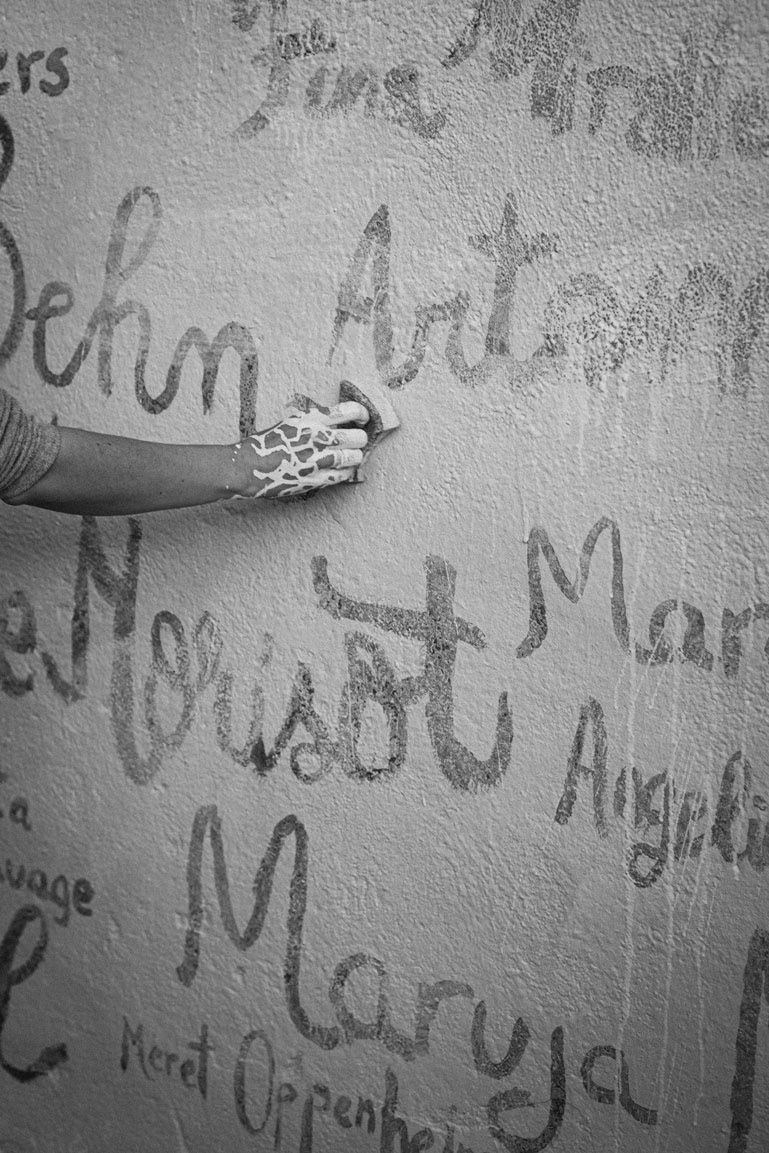 ers
Fina Miralle
Behn Artem
Morisot Mar
Angeli
ta
uvage
Maruja
Meret Oppenheim